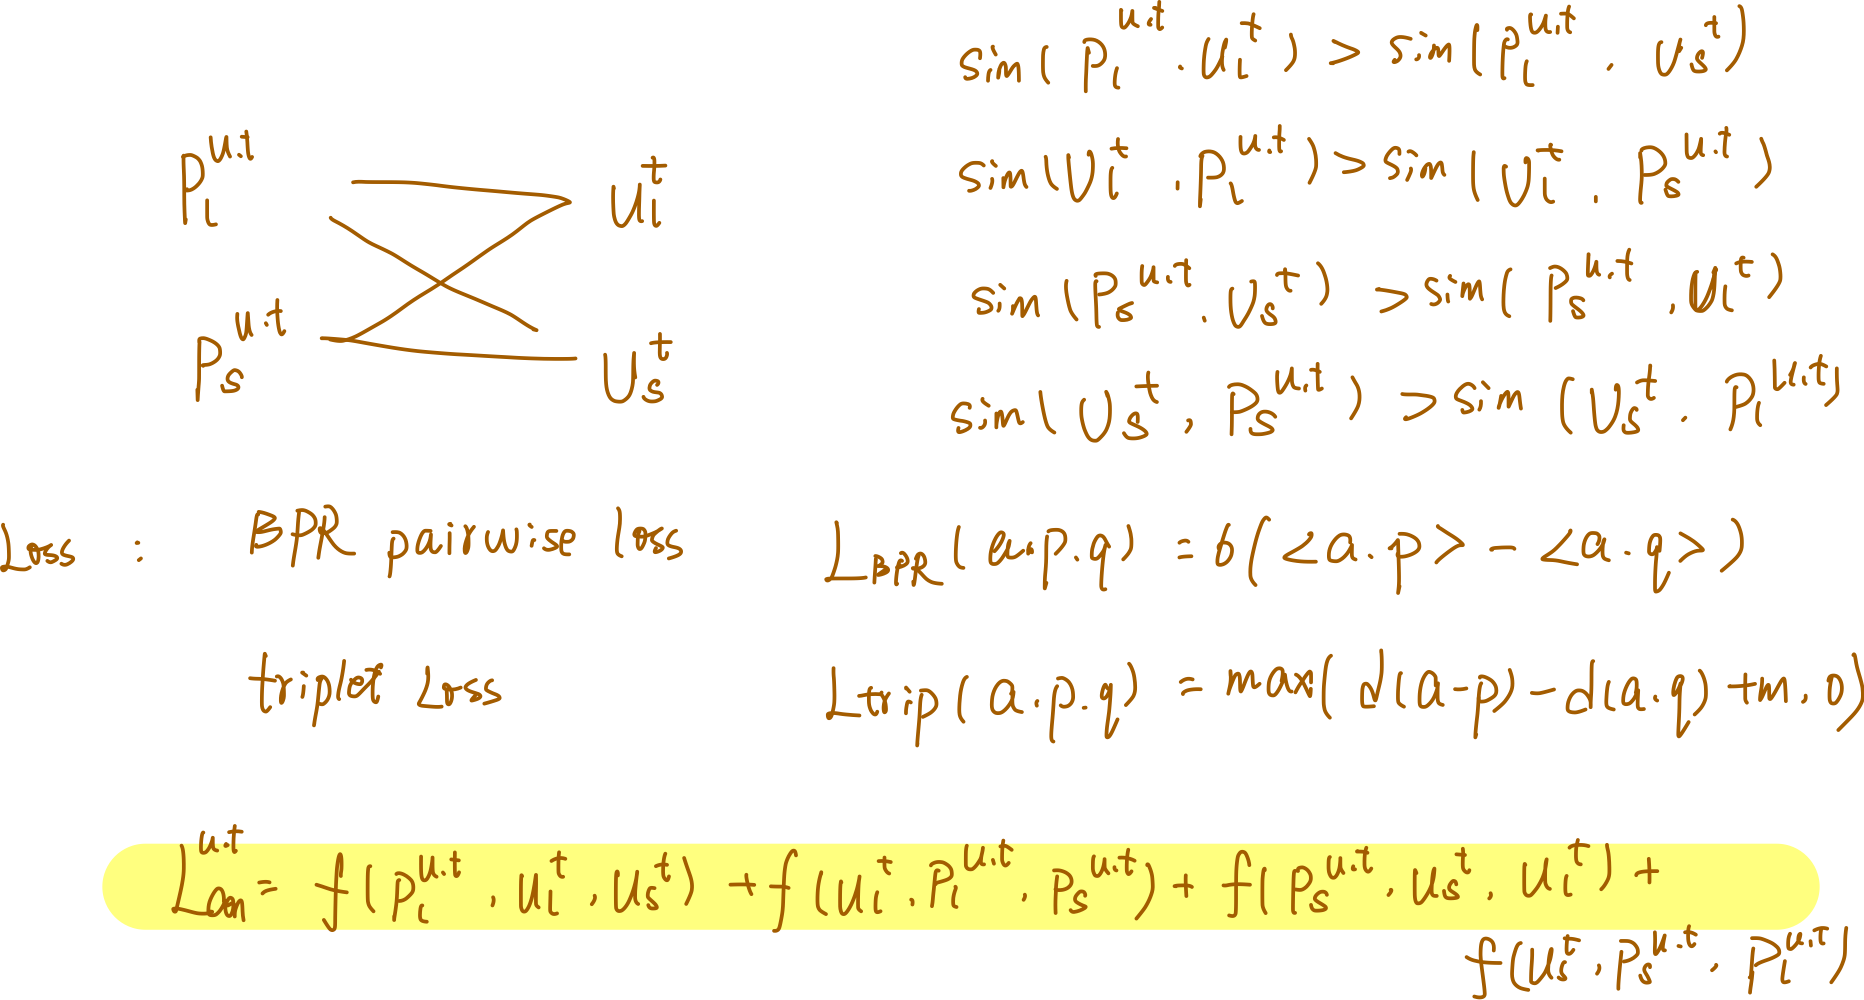 sim( P_l^{u.t} . U_l^t ) > sim( P_l^{u.t} . U_s^t )
P_l^{u.t} U_l^t
sim( U_l^t . P_l^{u.t} ) > sim( U_l^t . P_s^{u.t} )
sim( P_s^{u.t} . U_s^t ) > sim( P_s^{u.t} , U_l^t )
P_s^{u.t} U_s^t
sim( U_s^t , P_s^{u.t} ) > sim ( U_s^t . P_l^{u.t} )
Loss : BPR pairwise loss L_{BPR}( a.p.q ) = σ( <a.p> - <a.q> )
triplet Loss Ltrip( a.p.q ) = max( d(a-p) - d(a.q) + m, 0)
L_{con}^{u.t} = f( P_l^{u.t} , U_l^t , U_s^t ) + f( U_l^t . P_l^{u.t} , P_s^{u.t} ) + f( P_s^{u.t} , U_s^t , U_l^t ) +
f( U_s^t , P_s^{u.t} , P_l^{u.t} )